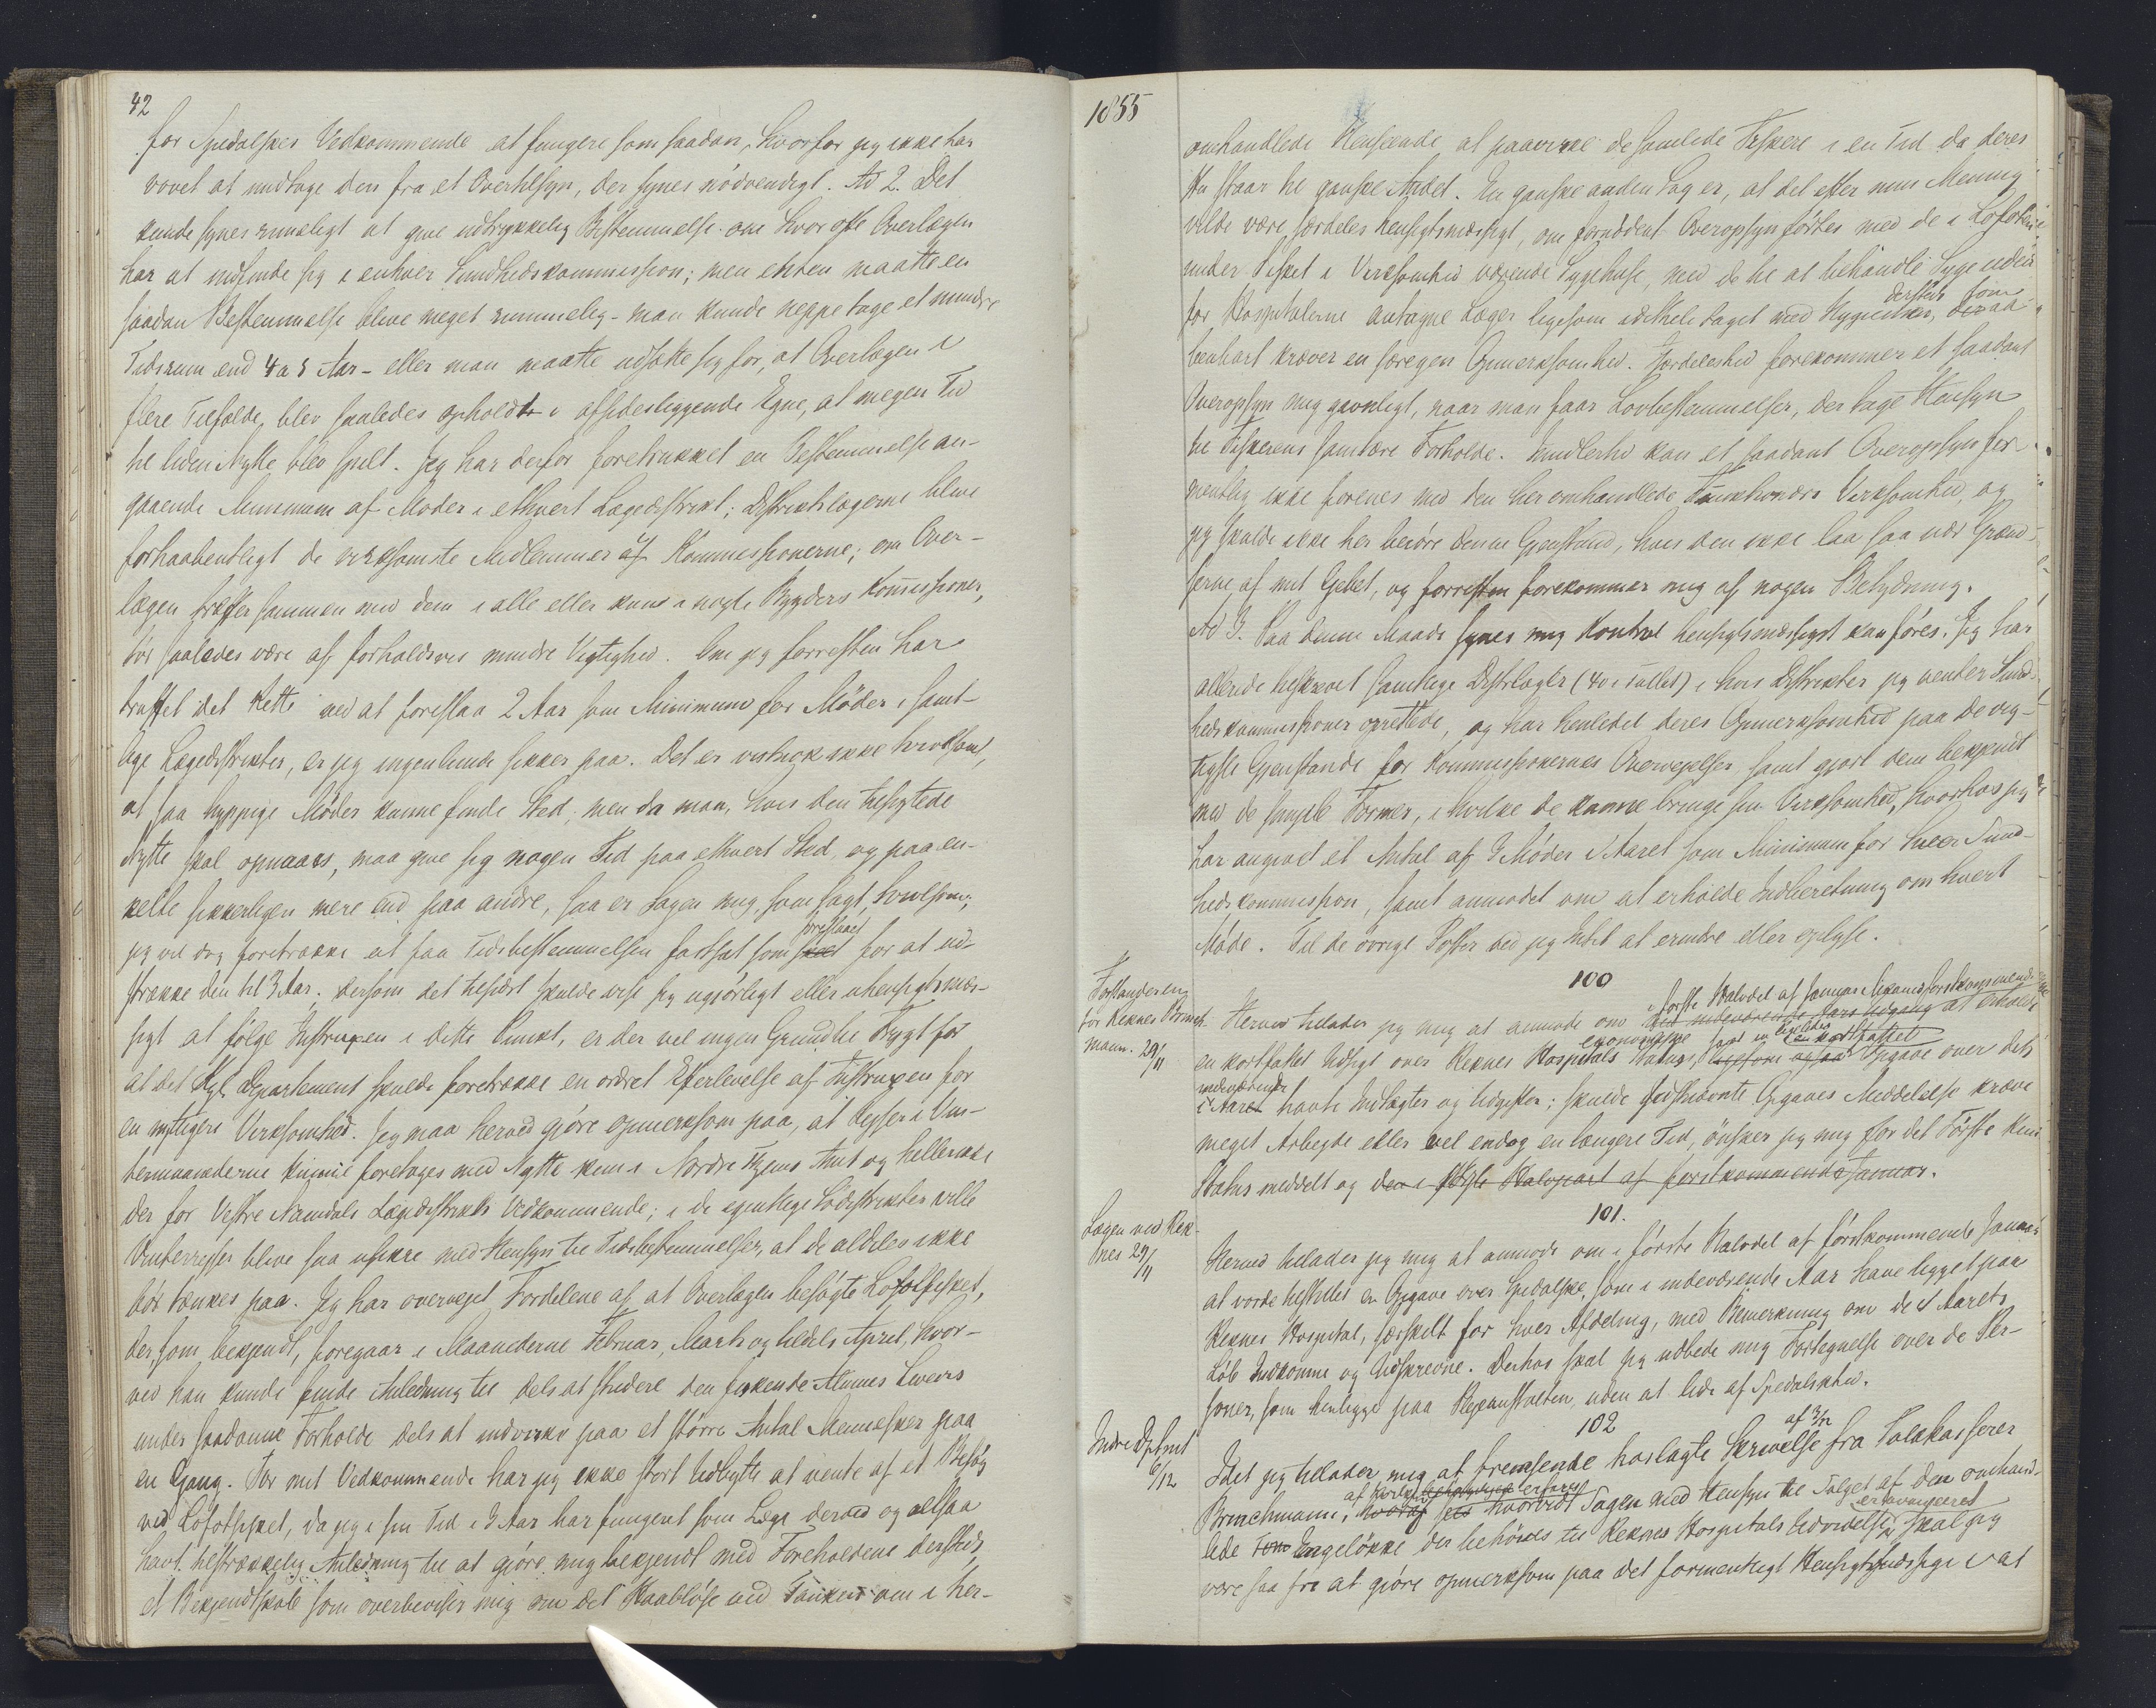 42
for Spedalskes Vedkommende at fungere som saadan, hvorfor jeg ikke har
vovet at undtage den fra et Overtilsyn, der synes nödvendigt. Ad 2. Det
kunde synes rimeligt at give udtrykkelig Bestemmelse om hvor ofte Overlægen
har at indfinde sig i enhver Sundhedskommission; men enten maatte en
saadan Bestemmelse blive meget rummelig - man kunde neppe tage et mindre
Tidsrum end 4 a 5 Aar - eller man maatte udsætte sig for, at Overlægen i
flere Tilfælde blev saaledes opholdt i afsidesliggende Egne, at megen Tid
til liden Nytte blev spildt. Jeg har derfor foretrukket en Bestemmelse an-
gaaende Minimum af Möder i ethvert Lægedistrikt; Distriktslægerne blive
forhaabentligt de virksomste Medlemmer af Kommissionerne; om Over-
lægen træffer sammen med dem i alle eller kun i nogle Bygders Kommissioner,
tör saaledes være af forholdsvis mindre Vigtighed. Om jeg forresten har
truffet det Rette ved at foreslaa 2 Aar som Minimum for Möder i samt-
lige Lægedistrikter, er jeg ingenlunde sikker paa. Det er vistnok ikke tvivlsomt,
at saa hyppige Möder kunne finde Sted; men da man, hvis den tilsigtede
Nytte skal opnaaes, maa give sig nogen Tid paa ethvert Sted, og paa en-
kelte sikkerligen mere end paa andre, saa er Sagen mig, som sagt, tvivlsom;
jeg vil dog foretrække at faa Tidsbestemmelsen fastsat som foreslaaet for at ud-
strække den til 3 Aar; dersom det tilsidst skulde vise sig ugjörligt eller uhensigtsmæs-
sigt at fölge Instruxen i dette Punkt, er der vel ingen Grund til Frygt for
at det Kgl. Departement skulde foretrække en ordret Efterlevelse af Instruxen for
en nyttigere Virksomhed. Jeg maa herved gjöre opmerksom paa, at Reyser i Vin-
termaanederne kunne foretages med Nytte kun i Nordre Thjems Amt og heller ikke
der for Vestre Namdals Lægedistrikts Vedkommende; i de egentlige Södistrikter ville
Vinterreyser blive saa usikre med Hensyn til Tidsbestemmelser, at de aldeles ikke
bör tænkes paa. Jeg har overvejet Fordelene af at Overlægen besögte Lofotfisket,
der, som bekjendt, foregaar i Maanederne Februar, Marts og tildels April, hvor-
ved han kunde finde Anledning til dels at studere den fiskende Almues Levevis
under saadanne Forholde dels at indvirke paa et större Antal Mennesker paa
en Gang. For mit Vedkommende har jeg ikke stort Udbytte at vente af et Besög
ved Lofotfisket, da jeg i sin Tid i 3 Aar har fungeret som Læge derved og altsaa
havt tilstrækkelig Anledning til at gjöre mig bekjendt med Forholdene dersteds,
et Bekjendtskab som overbeviser mig om det Haablöse ved Tanken om i her-
1855
omhandlede Henseende at paavirke de samlede Fiskere i en Tid da deres
Hu staar til ganske Andet. En ganske anden Sag er, at det efter min Mening
vilde være særdeles hensigtsmæssigt, om forövrigt Overopsyn förtes med de i Lofoten
under Fisket i Virksomhed værende Sygehuse, med de til at behandle Syge uden
for Hospitalerne antagne Læger ligesom idethele taget med Hygienen dersteds, som aa-
benbart kræver en særegen Opmerksomhed. Særdeleshed forekommer et saadant
Overopsyn mig gavnligt, naar man faar Lovbestemmelser, der tage Hensyn
til Fiskerens sanitære Forholde. Imidlertid kan et saadant Overopsyn for-
mentlig ikke forenes med den her omhandlede Funktionærs Virksomhed, og
jeg skulde ikke her beröre denne Gjenstand, hvis den ikke laa saa nær Grænd-
serne af mit Gebet, og forresten forekommer mig af nogen Betydning.
Ad 3. Paa denne Maade synes mig Kontrol hensigtsmæssigst kan föres. Jeg har
allerede tilskrevet samtlige Distrlæger (40 i Tallet) i hvis Distrikter jeg venter Sund-
hedskommissioner oprettede, og har henledet deres Opmerksomhed paa de vig-
tigste Gjenstande for Kommissionernes Overvejelser samt gjort dem bekjendt
med de simple Former, i hvilke de kunne bringe sin Virksomhed, hvorhos jeg
har angivet et Antal af 3 Möder i Aaret som Minimum for hver Sund-
hedskommission, samt anmodet om at erholde Indberetning om hvert
Möde. Til de övrige Poster ved jeg Intet at erindre eller oplyse.
100
Forstanderen
for Reknes Brinch-
mann. 29/11
Herved tillader jeg mig at anmode om i förste Halvdel af Januar Maaned förstkommende at erholde
en kortfattet Udsigt over Reknes Hospitals economiske Status, samt en ligeledes kortfattet Opgave over dets
i indeværende Aar havte Indtægter og Udgifter; skulde sidstnævnte Opgaves Meddelelse kræve
meget Arbejde eller vel endog en længere Tid, önsker jeg mig for det Förste kun
Status meddelt og den i förste Halvpart af förstkommende Januar.
101.
Lægen ved Rek-
nes 29/11
Herved tillader jeg mig at anmode om i förste Halvdel af förstkommende Januar
at vorde tilstillet en Opgave over Spedalske, som i indeværende Aar have ligget paa
Reknes Hospital, særskilt for hver Afdeling, med Bemerkning om de i Aarets
Löb Indkomne og Udskrevne. Derhos skal jeg udbede mig Fortegnelse over de Per-
soner, som henligge paa Plejeanstalten, uden at lide af Spedalskhed.
102
Indre Dptmt
6/12
Idet jeg tillader mig at fremsende hoslagte Skrivelse af 3/12 fra Tolekasserer
Brinchmann, af hvilken erfares hvorvidt Sagen med Hensyn til Salget af den omhand-
lede Engelökke der behöves til Reknes Hospitals Udvidelse er avanceret skal jeg
være saa fri at gjöre opmerksom paa det formentligt Hensigtsmæssige i at